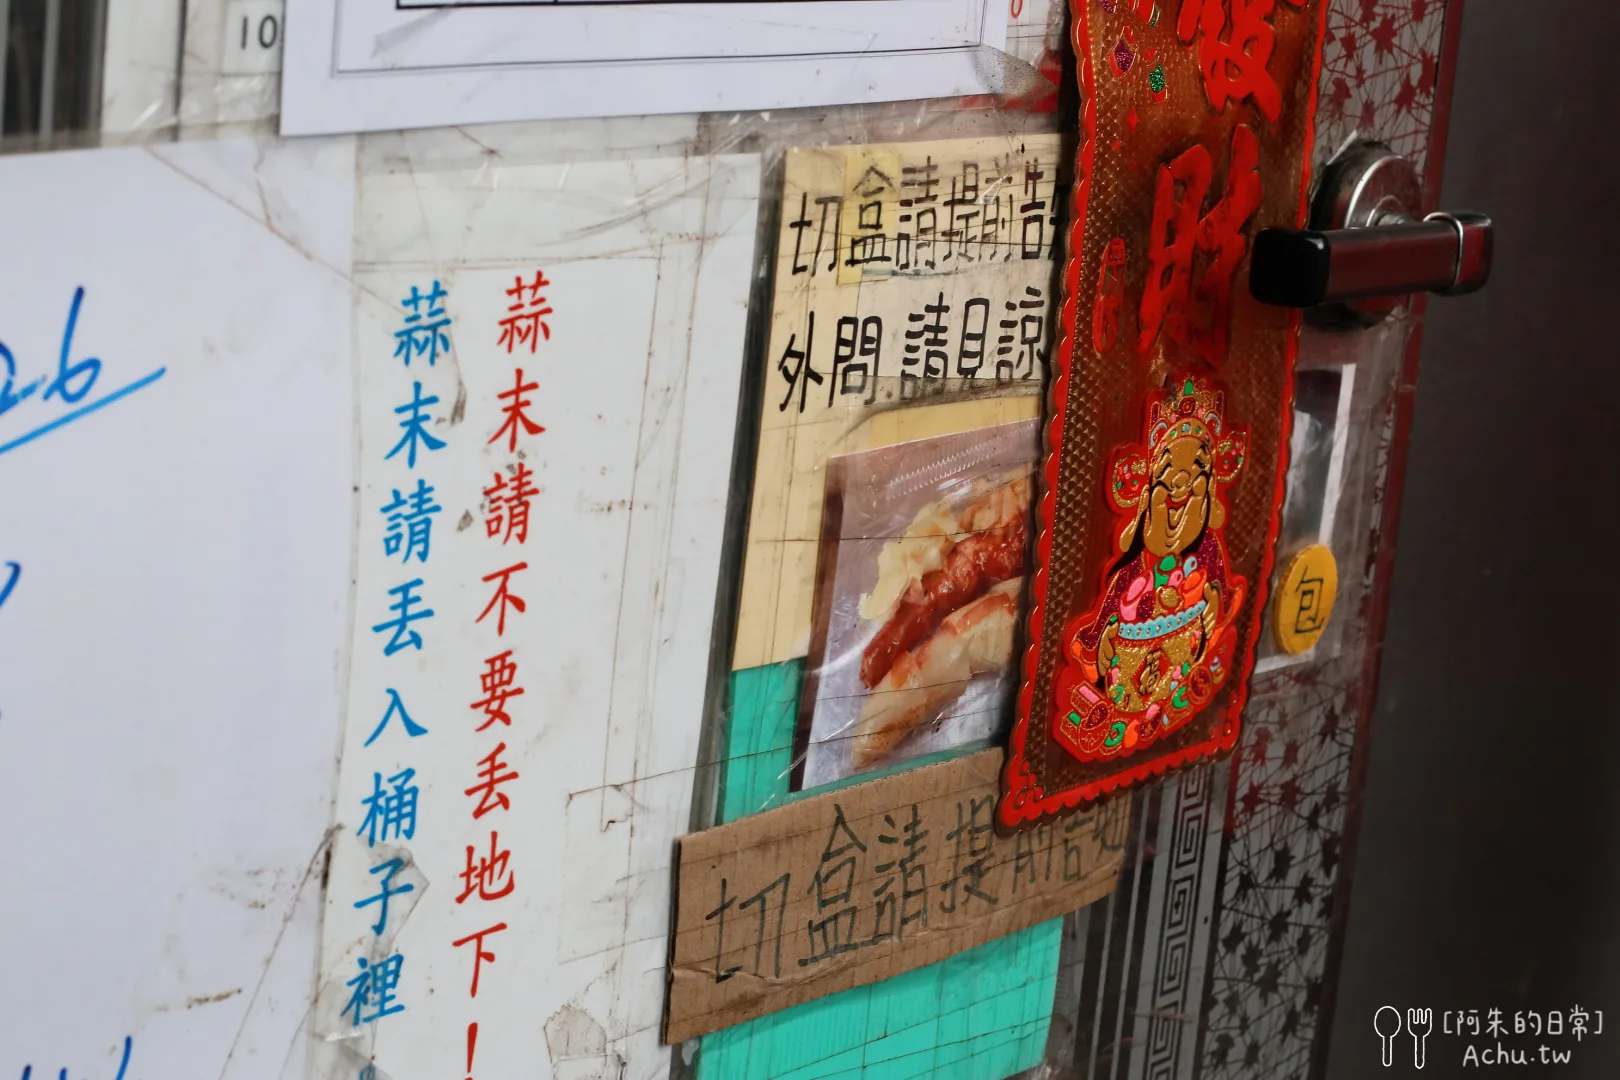 10
蒜末請不要丟地下！
蒜末請丟入桶子裡
切盒請提前告
外問.請見諒
切盒請提前告
發財
福
包
[阿朱的日常]
Achu.tw